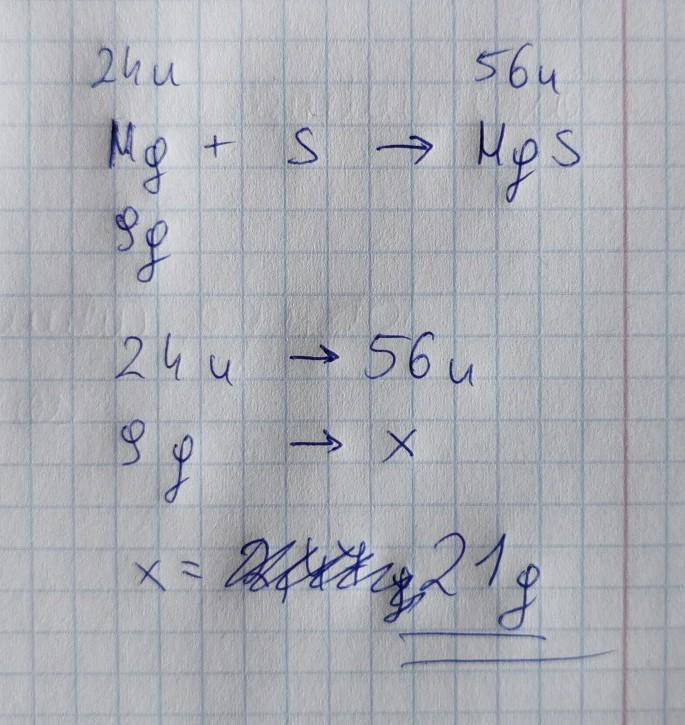 24u 56u
Mg + S → MgS
9g
24u → 56u
9g → x
x = 21g